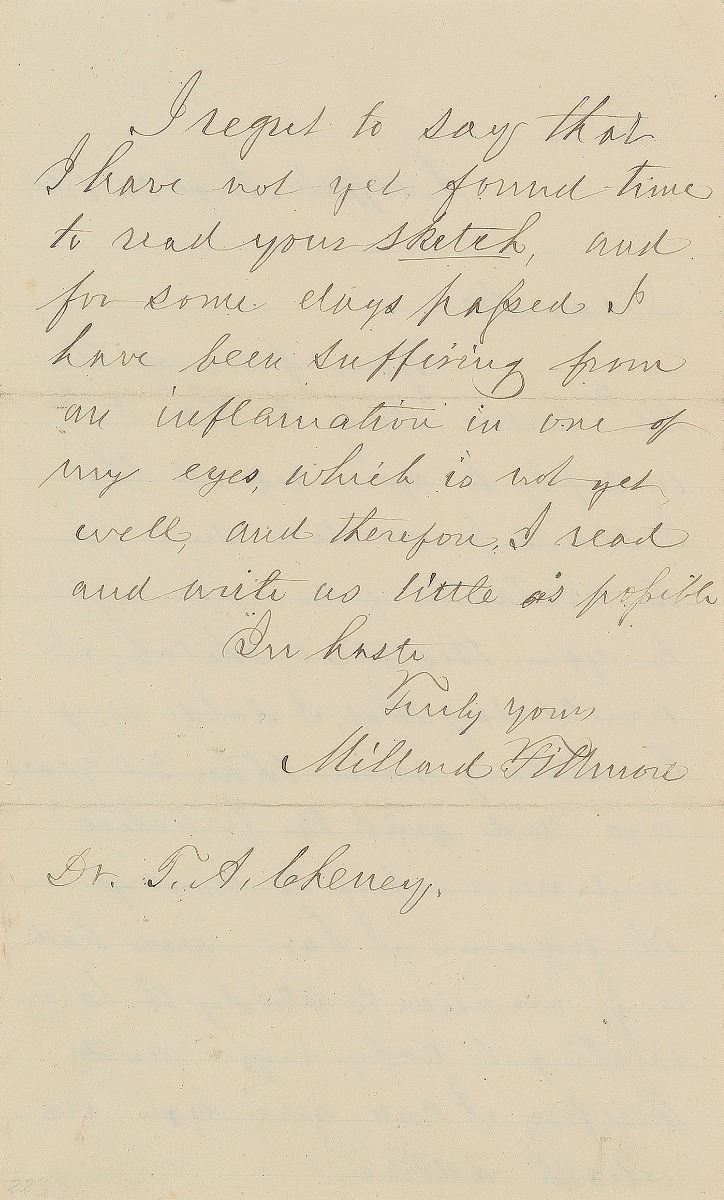 I regret to say that
I have not yet found time
to read your sketch, and
for some days passed I
have been suffering from
an inflamation in one of
my eyes, which is not yet
well, and therefore, I read
and write as little as possible
In haste
Truly yours
Millard Fillmore
Dr. T. A. Cheney.